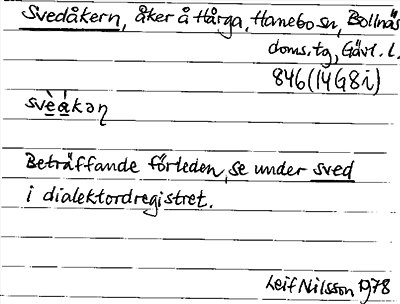 Svedåkern, åker å Hårga, Hanebo sn, Bollnäs
doms.tg, Gävl. l.
846 (14G8i)
svèákəɳ
Beträffande förleden, se under sved
i dialektordregistret.
Leif Nilsson 1978